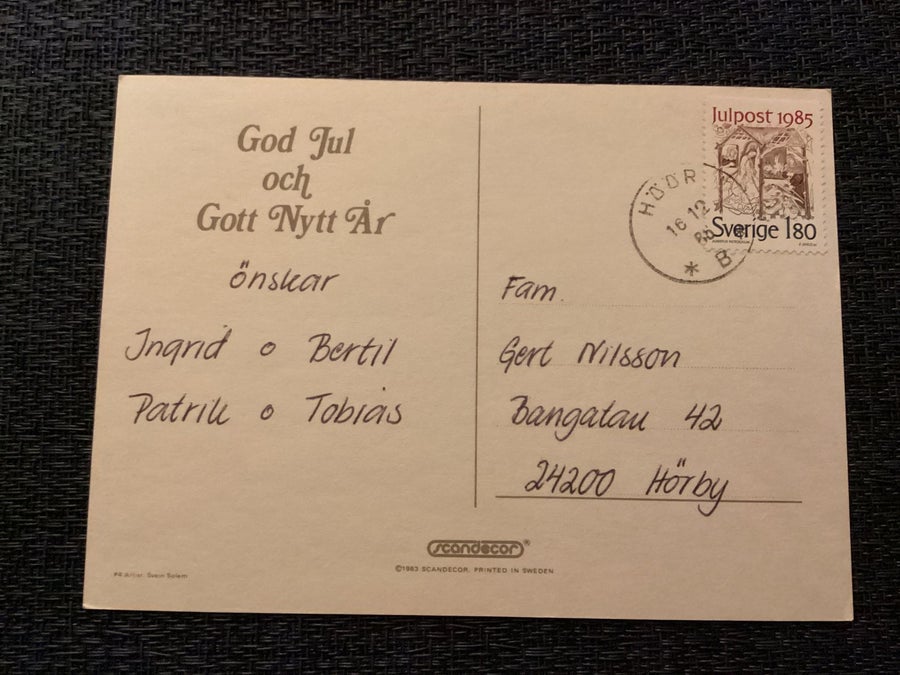 God Jul
och
Gott Nytt År
önskar
Ingrid o Bertil
Patrik o Tobias
Julpost 1985
Sverige 180
HÖÖR 1
16 12
85
* B
Fam.
Gert Nilsson
Bangatan 42
24200 Hörby
scandecor®
©1983 SCANDECOR, PRINTED IN SWEDEN
Artist: Svein Solem